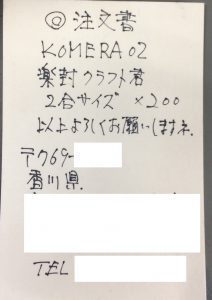 ◎注文書
KOMERA02
楽封クラフト君
2合サイズ ×200
以上よろしくお願いしますネ
〒769-
香川県.
TEL